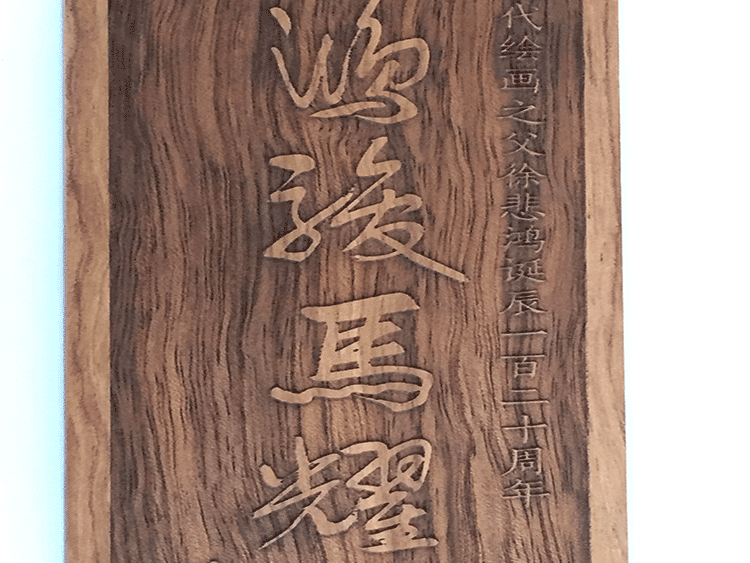 代绘画之父徐悲鸿诞辰一百二十周年
鸿骏馬耀